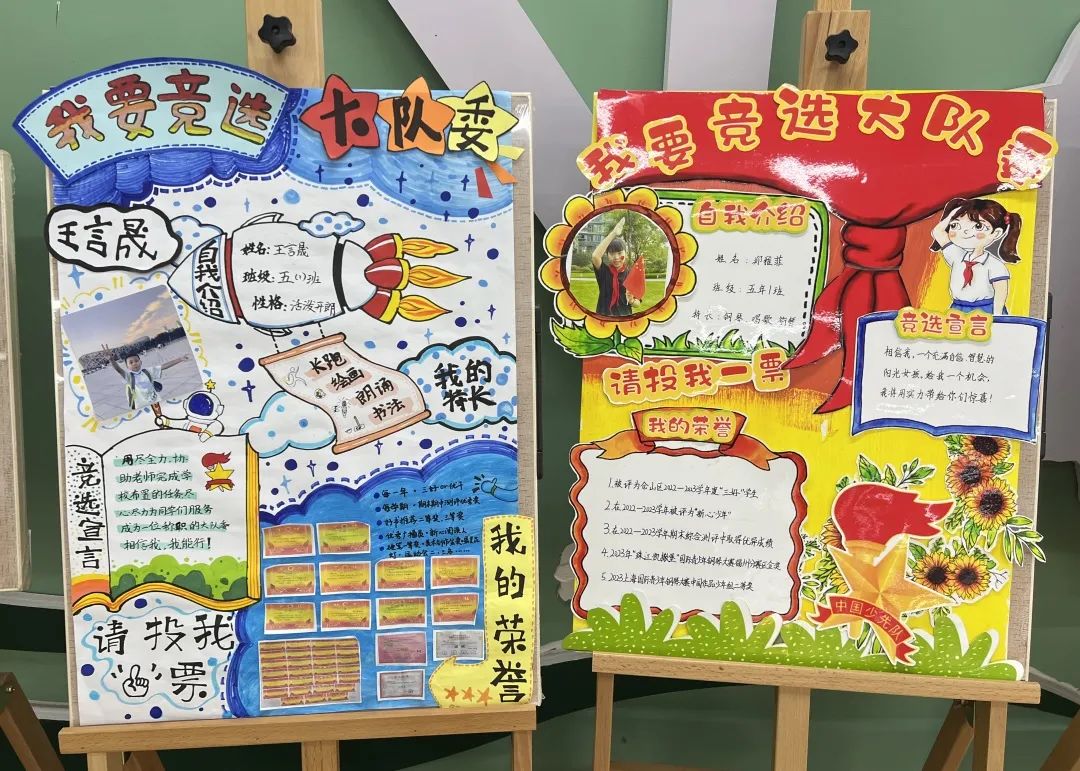 我要竞选
大队委
王言晟
自我介绍
姓名:王言晟
班级:五(1)班
性格:活泼开朗
长跑
绘画
朗诵
书法
我的
特长
竞选宣言
用尽全力,协
助老师完成学
校布置的任务尽
心尽力为同学们服务
成为一位称职的大队委
相信我,我能行!
我的荣誉
请投我
票
我要竞选大队委
自我介绍
班级:五年1班
特长:钢琴、唱歌
请投我一票
竞选宣言
相信我,一个充满自信、智慧的
阳光女孩,给我一个机会,
我将用实力带给你们惊喜!
我的荣誉
1.被评为仓山区2022-2023学年度"三好"学生
2.在2022-2023学年被评为"新心少年"
3.在2022-2023学年期末综合测评中取得优异成绩
4.2023年"珠江·恺撒堡"国际青少年钢琴大赛福州分赛区金奖
5.2023上海国际青少年钢琴大赛中国作品少年组二等奖
中国少先队